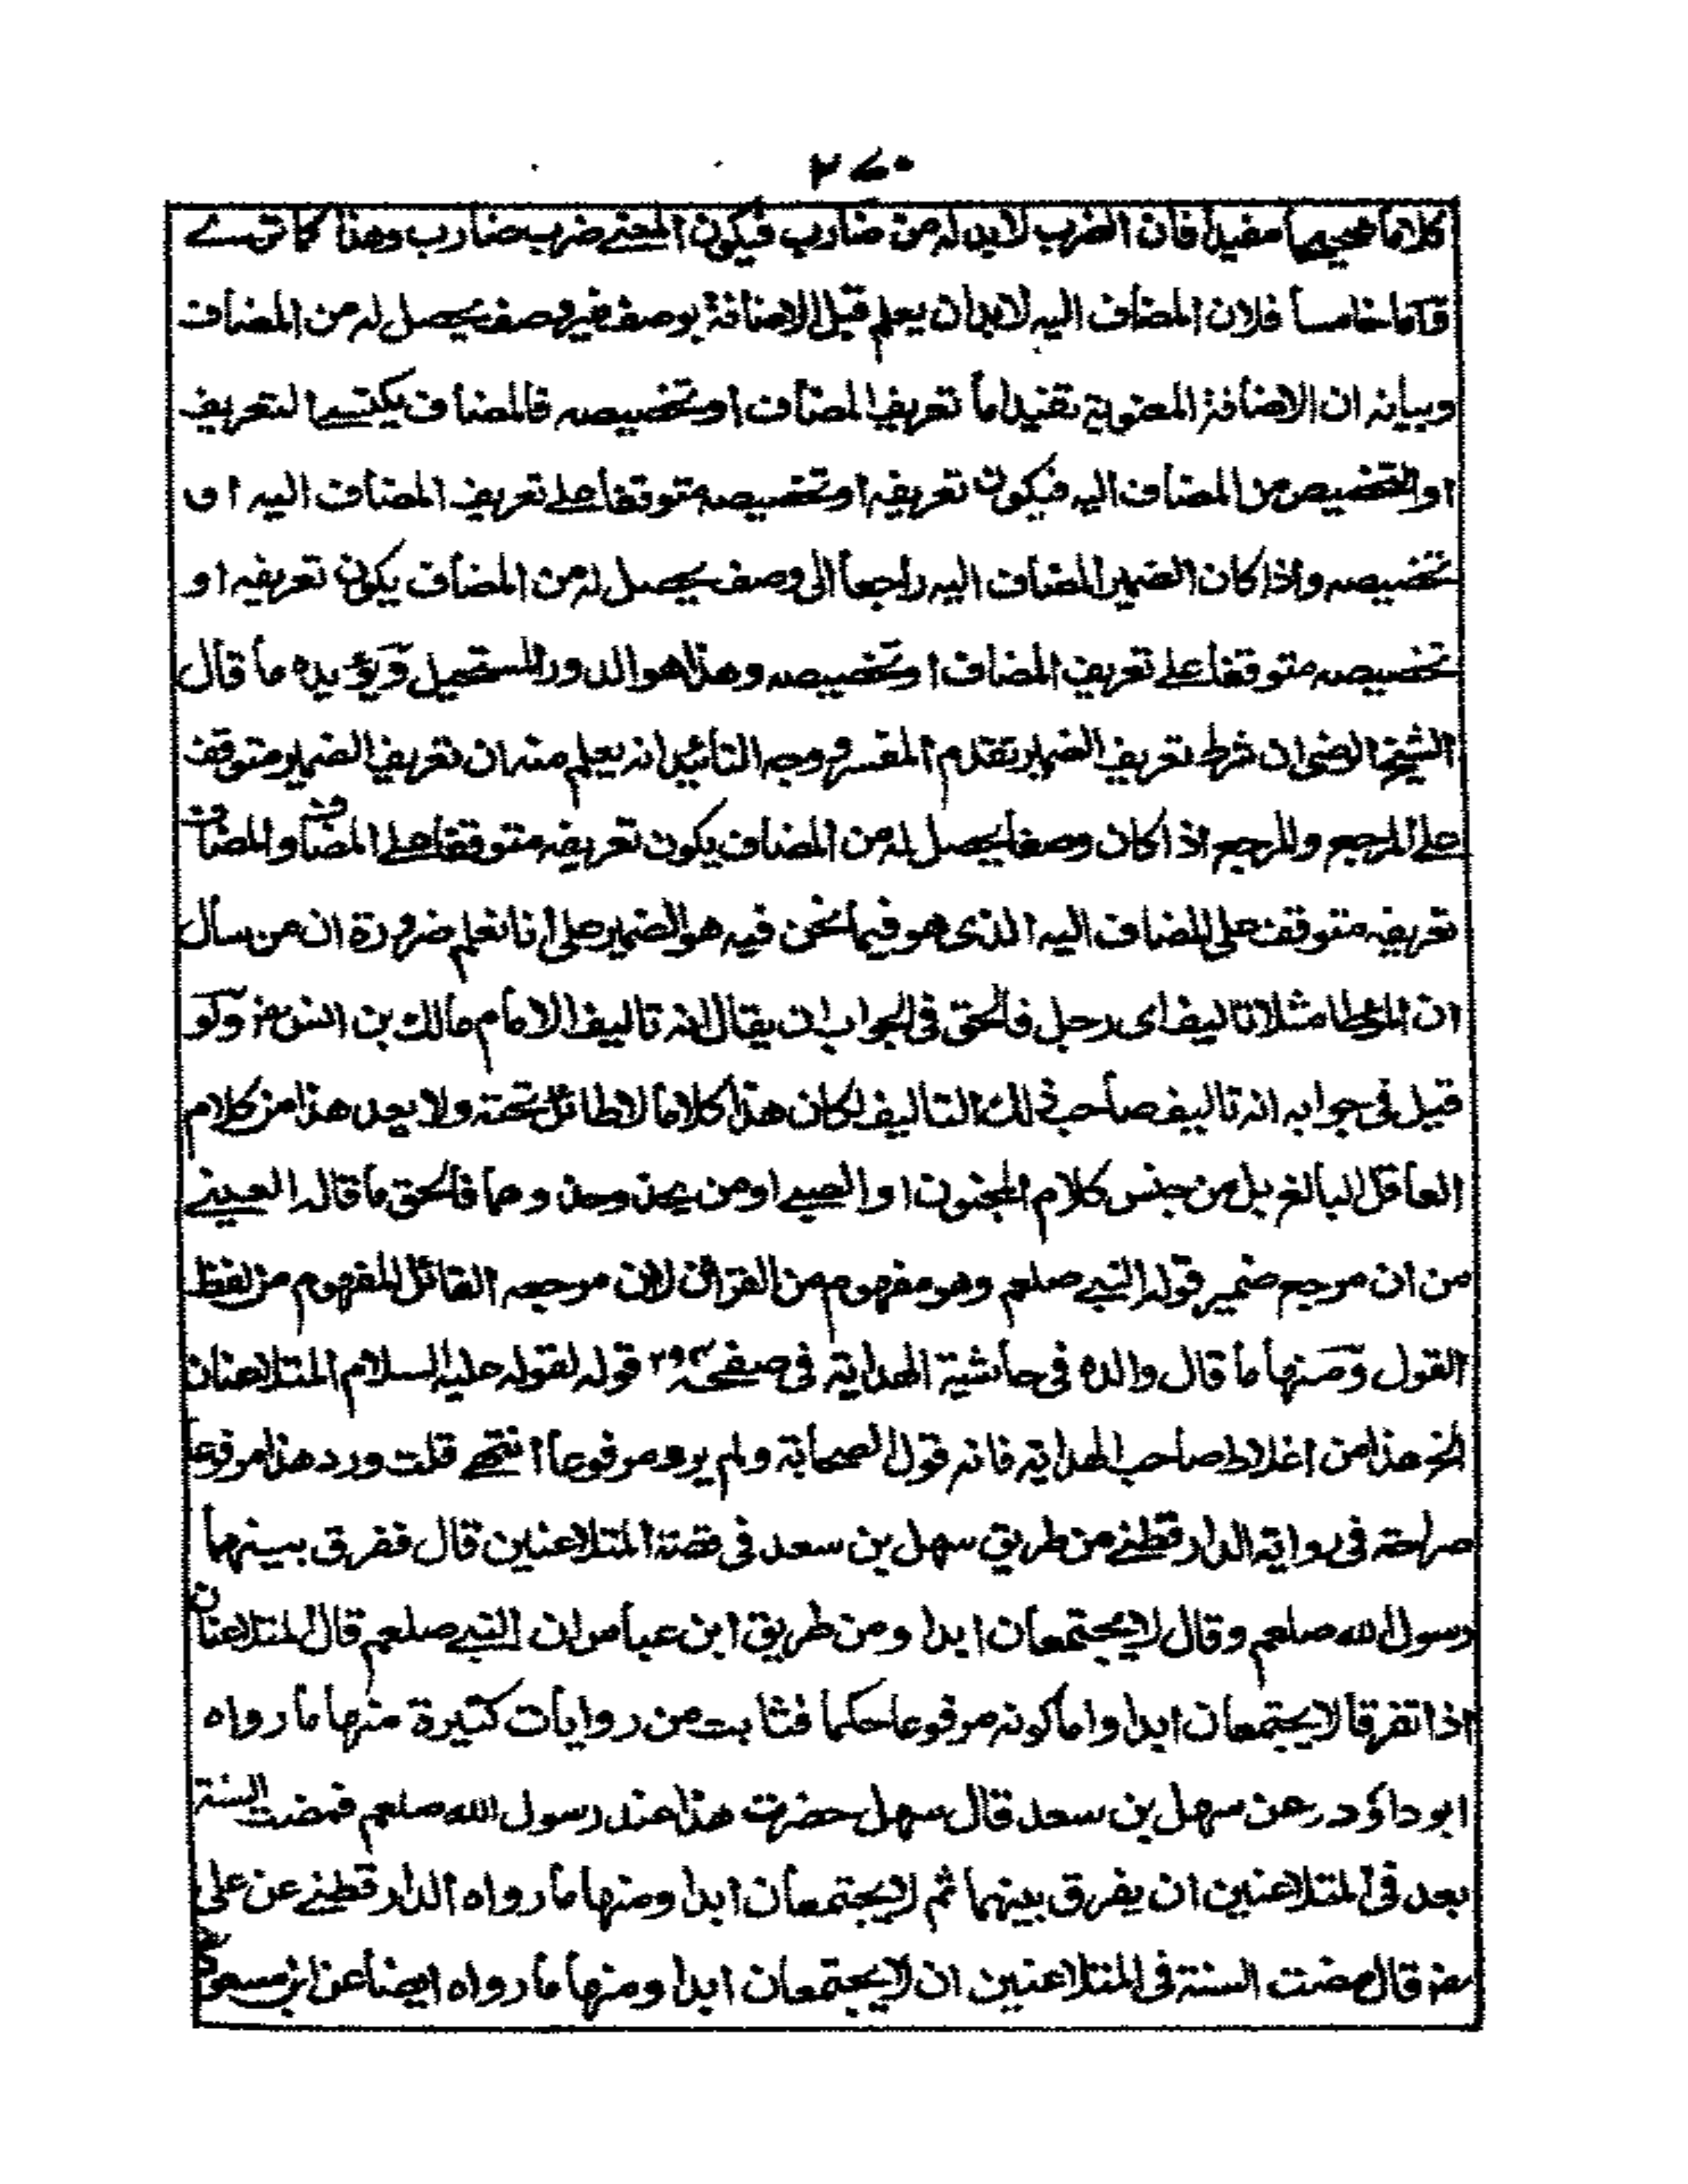 ٢٧٠
كلاما صحيحا مفيدا فان الضرب لا بد له من ضارب فيكون المعنے ضرب ضارب وهذا كما ترے
وَاما خامسا فلان المضاف اليه لا بد ان يعلم قبل الاضافة بوصف غير وصف يحصل له من المضاف
وبيانه ان الاضافة المعنوية تفيد اما تعريف المضاف او تخصيصه فالمضاف يكتسب التعريف
او التخصيص من المضاف اليه فيكون تعريفه او تخصيصه متوقفا علے تعريف المضاف اليه او
تخصيصه واذا كان الضمير المضاف اليه راجعا الى وصف يحصل له من المضاف يكون تعريفه او
تخصيصه متوقفا علے تعريف المضاف او تخصيصه وهذا هو الدور المستحيل وَيؤيده ما قال
الشيخ الرضى ان شرط تعريف الضمير تقدم المفسر ووجه التائيد انه يعلم منه ان تعريف الضمير متوقف
علے المرجع والمرجع اذا كان وصفا يحصل له من المضاف يكون تعريفه متوقفا علے المضاف والمضاف
تعريفه متوقف على المضاف اليه الذى هو فيما نحن فيه هو الضمير على انا نعلم ضرورة ان من سأل
ان الموطا مثلا تاليف اى رجل فالحق فى الجواب ان يقال انه تاليف الامام مالك بن انس رض وَلو
قيل فى جوابه انه تاليف صاحب ذلك التاليف لكان هذا كلاما لا طائل تحته ولا يعد هذا من كلام
العاقل البالغ بل من جنس كلام المجنون او الصبے او من يحذو حذوهما فالحق ما قاله العينے
من ان مرجع ضمير قوله النبے صلعم وهو مفهوم من القرائن لان مرجعه القائل المفهوم من لفظ
القول وَمنها ما قال والده فى حاشية الهداية فى صفحه ٣٩٢ قوله لقوله عليه السلام المتلاعنان
الخ هذا من اغلاط صاحب الهداية فانه قول الصحابة ولم يرو مرفوعا انتهے قلت ورد هذا مرفوعا
صراحة فى رواية الدارقطنے من طريق سهل بن سعد فى قصة المتلاعنين قال ففرق بينهما
رسول الله صلعم وقال لا يجتمعان ابدا ومن طريق ابن عباس ان النبے صلعم قال المتلاعنان
اذا تفرقا لا يجتمعان ابدا واما كونه مرفوعا حكما فثابت من روايات كثيرة منها ما رواه
ابو داؤد عن سهل بن سعد قال سهل حضرت هذا عند رسول الله صلعم فمضت السنة
بعد فى المتلاعنين ان يفرق بينهما ثم لا يجتمعان ابدا ومنها ما رواه الدارقطنے عن على
رض قال مضت السنة فى المتلاعنين ان لا يجتمعان ابدا ومنها ما رواه ايضا عن ابن مسعود